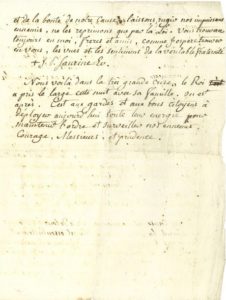 et de la bonté de notre Cause, laissons rugir nos impuissans
ennemis, ne les reprimons que par la Loi. Vous trouverez
toujours en moi, Freres et amis, comme j'espere trouver
en vous, les vues et les sentimens de la veritable fraternité
+ J. P. Saurine Ev.
Nous voila dans la plus grande Crise, le Roi
a pris le large cette nuit avec sa famille, on est
après. C'est aux gardes et aux bons citoyens à
deployer aujourd'hui toute leur energie pour
maintenir l'ordre et surveiller nos ennemis
Courage, Messieurs, et prudence.